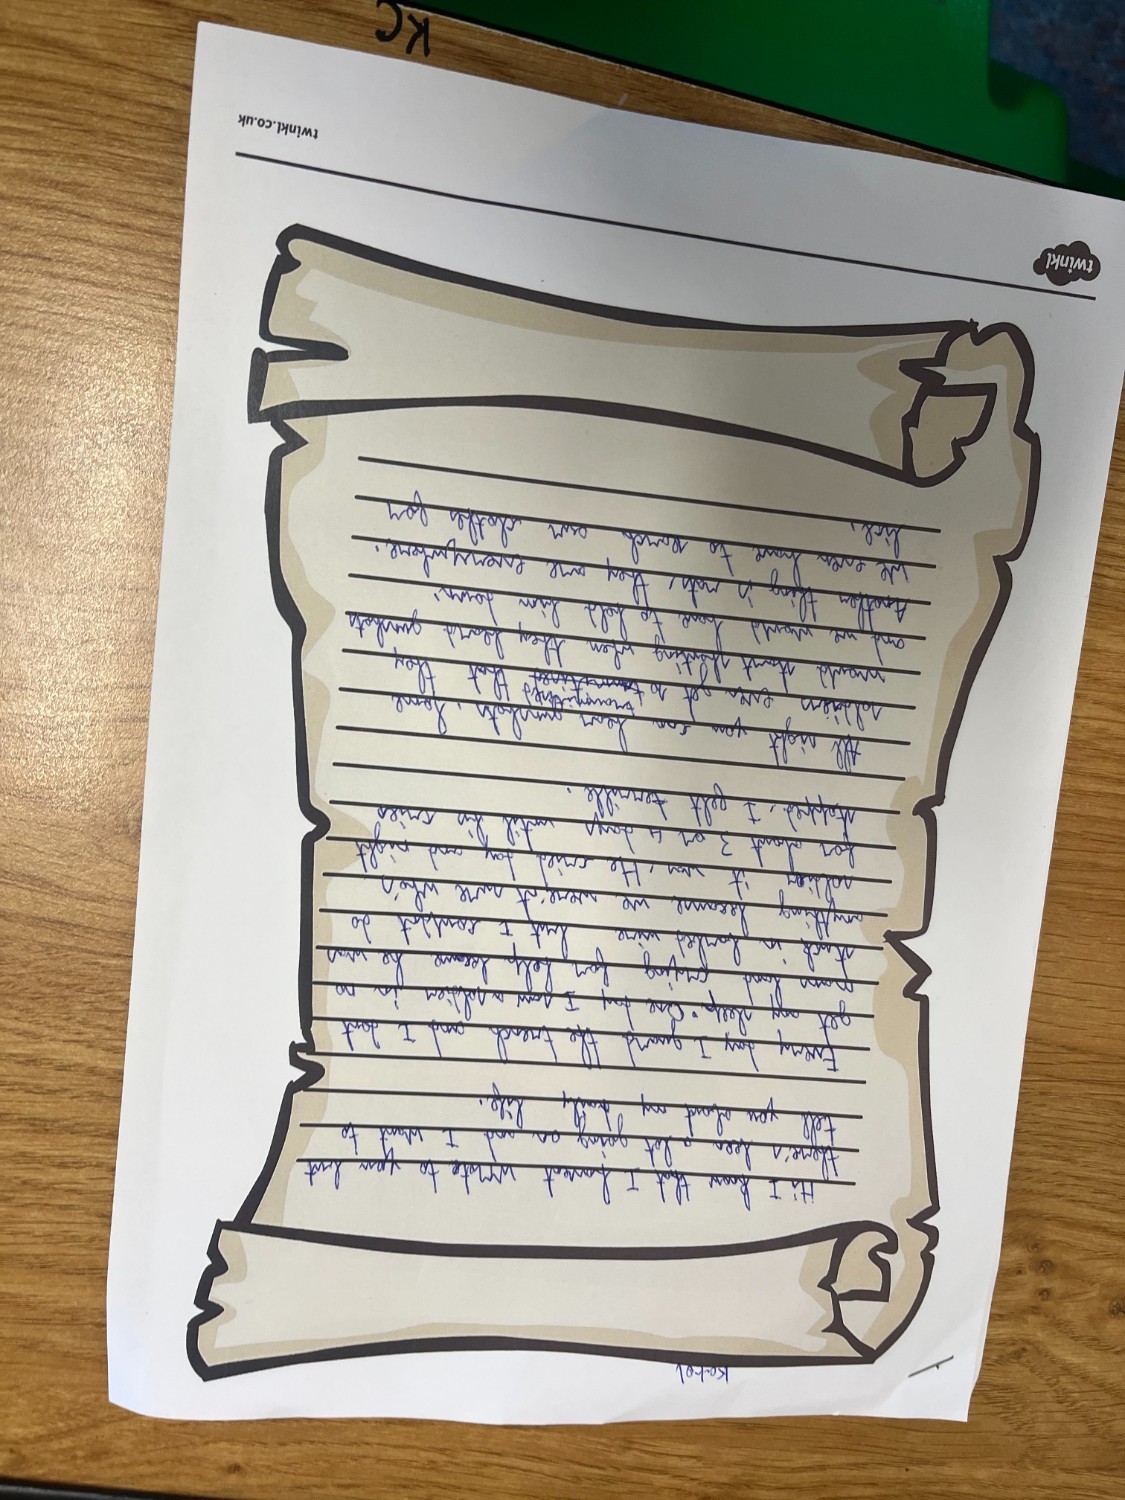 Karol
Hi I know that I havent wrote to you but
there's been a lot going on and I want to
tell you about my daily life.
Every day I guard the trench and I dont
get any sleep. One day I saw a soldier in no
mans land crying for help because he was
stuck in barbed wire but I couldnt do
anything because we weren't sure who's
soldier it was. He cried day and night
for about 3 or 4 days until his cries
stopped. I felt terrible.
All night you can hear gunshots. Some
soldiers ever get so traumitised that they
would start shaking when they heard gunshots
and we would have to hold him down.
Another thing is rats, they are everywhere.
We even have to search our clothes for
lice.
twinkl
twinkl.co.uk
KC